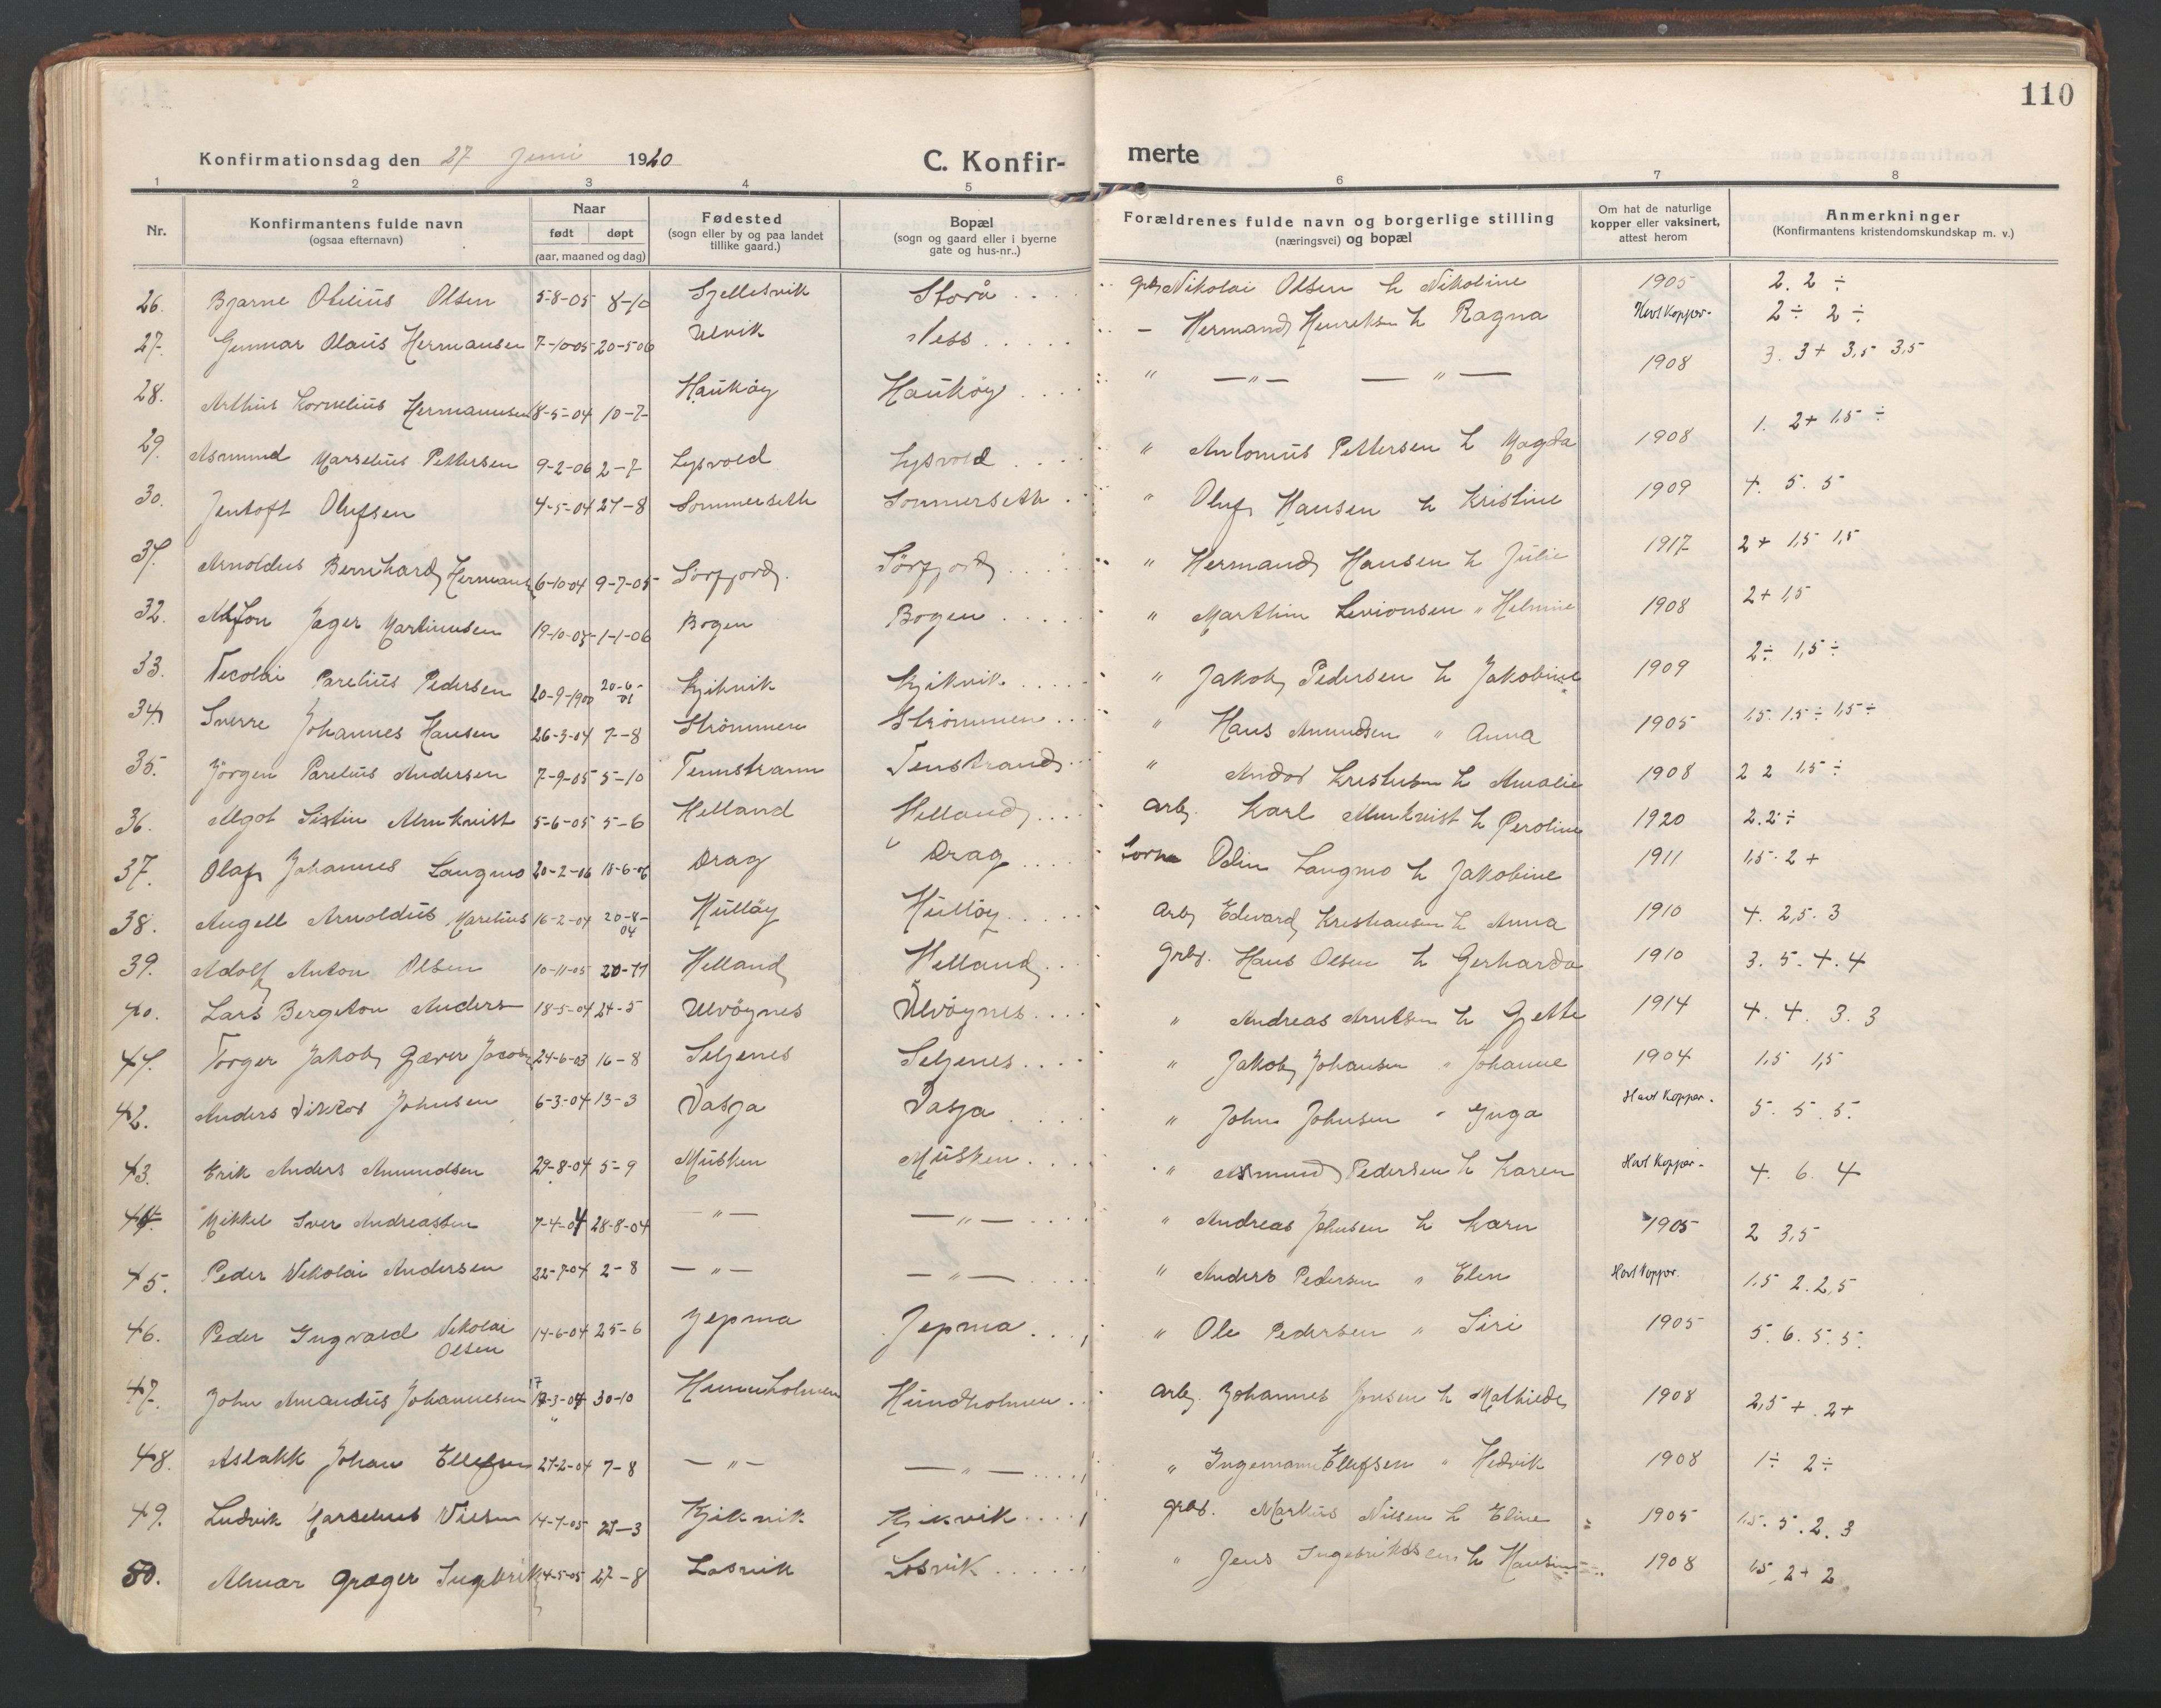 110
Konfirmationsdag den 27 Juni 1920 C. Konfir- merte
1 2 3 4 5 6 7 8
Nr. Konfirmantens fulde navn (ogsaa efternavn) Naar født døpt (aar, maaned og dag) Fødested (sogn eller by og paa landet tillike gaard.) Bopæl (sogn og gaard eller i byerne gate og hus-nr..) Forældrenes fulde navn og borgerlige stilling (næringsvei) og bopæl Om hat de naturlige kopper eller vaksinert, attest herom Anmerkninger (Konfirmantens kristendomskundskap m. v.)
26. Bjarne Otelius Olsen 5-8-05 8-10 Storå Nikolai Olsen h Nikoline 1905 2. 2 ÷
27. Gunnar Olaus Hermansen 7-10-05 20-5-06 Ulvik Ness — Hermand Henriksen h Ragna Havt Kopper. 2÷ 2÷
28. Arthur Kornelius Hermansen 18-5-04 10-7- Haukøy Haukøy " —"— —"— 1908 3. 3+ 3,5 3,5
29. Asmund Marselius Pettersen 9-2-06 2-7 Lysvold Lysvold " Antonius Pettersen h Magda 1908 1. 2+ 1,5 ÷
30. Jentoft Olufsen 4-5-04 27-8 Sommerseth Sommerseth " Oluf Hansen h Kristine 1909 4. 5. 5
31. Arnoldus Bernhard Hermans 6-10-04 9-7-05 Sørfjord. Sørfjord " Hermand Hansen h Julie 1917 2+ 1,5 1,5
32. Jæger Martinusen 19-10-05 1-1-06 Bogen Bogen " Marthin " Helmine 1908 2+ 1,5
33. Nicolai Parelius Pedersen 20-9-1900 20-6-01 Kjikvik Kjikvik " Jakob Pedersen h Jakobine 1909 2÷ 1,5÷
34. Sverre Johannes Hansen 26-3-04 7-8 Strømmen Strømmen " Hans Amundsen " Anna 1905 1,5. 1,5÷ 1,5÷
35. Jørgen Parelius Andersen 7-9-05 5-10 Tennstrann Tenstrand " Andor h Amalie 1908 2 2 1,5 ÷
36. Algot Sixtin Almkvist 5-6-05 5-6 Helland Helland arb. Karl Almkvist h Peroline 1920 2.2÷
37. Olaf Johannes Langmo 20-2-06 18-6-06 Drag Drag Odin Langmo h Jakobine 1911 1,5. 2+
38. Angell Arnoldus Marelius 16-2-04 20-8-04 Hulløy Hulløy Arb. Edvard Kristiansen h Anna 1910 4. 2,5. 3
39. Adolf Anton Olsen 10-11-05 20-11 Helland Helland grbr. Hans Olsen h Gerharda 1910 3. 5. 4. 4
40. Lars Bergeton Anders 18-5-04 24-5 Ulvøynes Ulvøynes " Andreas h Gjette 1914 4. 4. 3. 3
41. Torger Jakob Gæver Jacobs 24-6-03 16-8 Seljenes Seljenes " Jakob Johansen " Johanne 1904 1,5 1,5
42. Anders Viktor Johnsen 6-3-04 13-3 Vasja Vasja " John Johnsen " Inga Havt Kopper. 5. 5. 5.
43. Erik Anders Amundsen 29-8-04 5-9 Musken Musken " Asmund Pedersen h Karen Havt Kopper. 4. 6. 4
44. Mikkel Iver Andreassen 7-4-04 28-8-04 —"— —"— " Andreas Johnsen h Karn 1905 2 3,5
45. Peder Nikolai Andersen 22-7-04 2-8 —"— —"— " Anders Pedersen " Elen Havt Kopper. 1,5 2. 2,5
46. Peder Ingvald Nikolai Olsen 14-6-04 25-6 Jepma Jepma " Ole Pedersen " Siri 1905 5. 6. 5. 5.
47. John Amandus Johannesen 17-3-04 30-10 Hunnholmen Hundholmen arb. Johannes Jensen h Mathilde 1908 2,5+. 2+
48. Aslakk Johan Ellefsen 27-2-04 7-8 —"— —"— " Ingemann Ellefsen " Hedvik 1908 1÷ 2÷
49. Ludvik Marselius Nilsen 14-7-05 27-3 Kjikvik Kjikvik grbr. Markus Nilsen h Eline 1905 1,5. 5. 2. 3
50. Almar Græger Ingebrik 4-5-05 27-8 Losvik Losvik " Jens Ingebriktsen h 1908 1,5 2+ 2